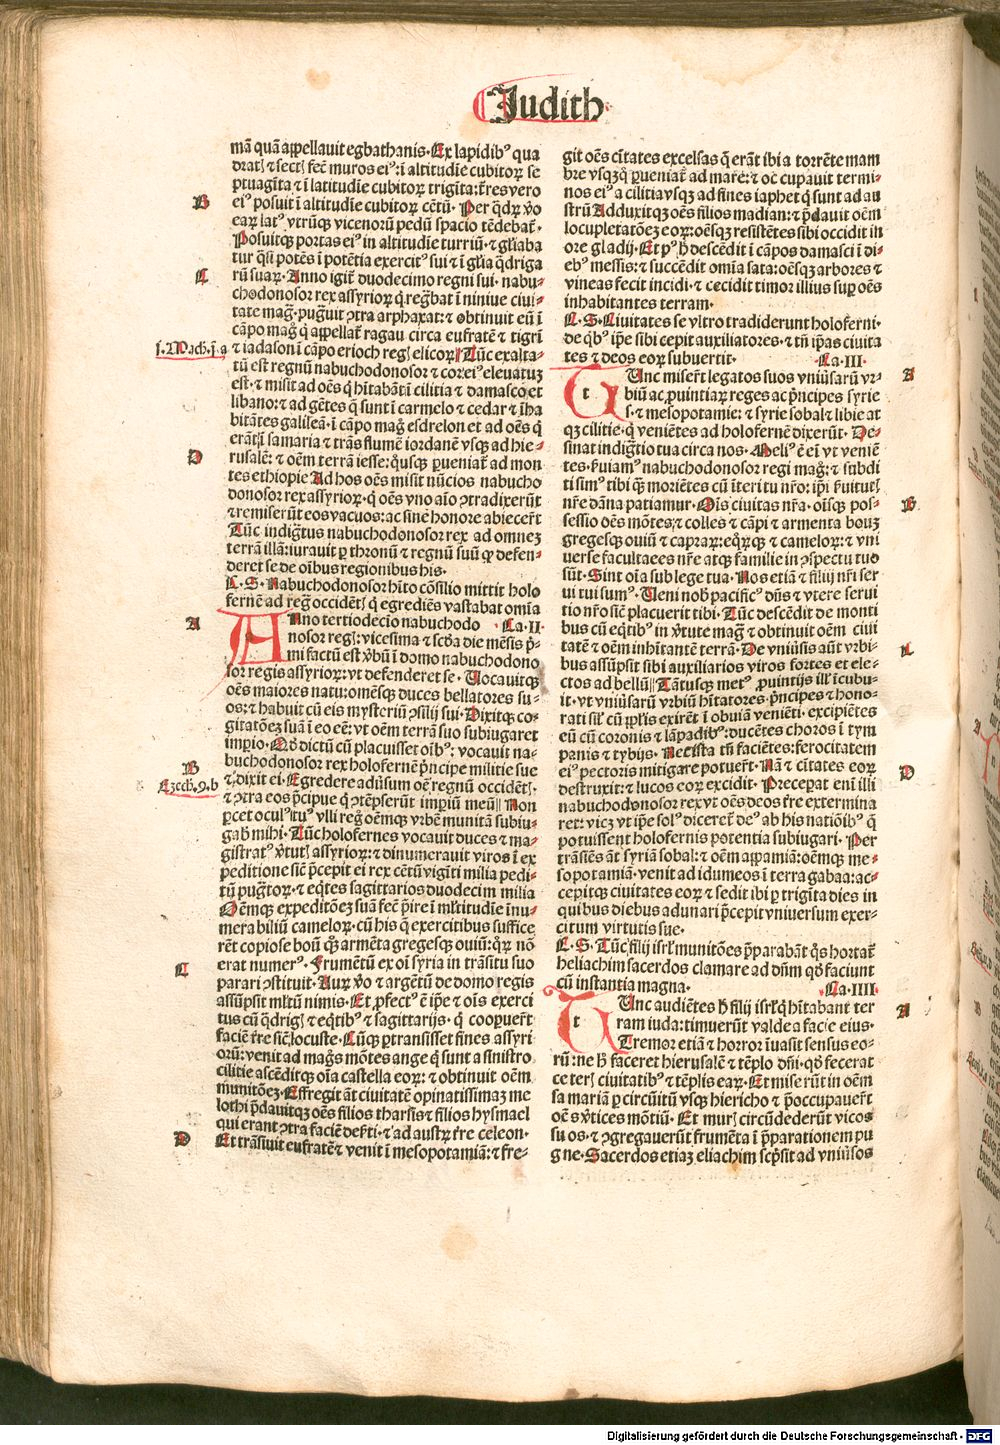 Judith
mā quā appellauit egbathanis. Ex lapidibꝰ qua
dratꝭ ⁊ sectꝭ fec̄ muros eiꝰ: ī altitudīe cubitoꝝ se
ptuagīta ⁊ ī latitudīe cubitoꝝ trigīta: t̄res vero
B
eiꝰ posuit ī altitudīe cubitoꝝ cētū. Per q̄dꝝ v̄o
eaꝝ latꝰ vtrūqꝫ vicenoꝝ pedū spacio tēdebat̄.
Posuitqꝫ portas eiꝰ in altitudīe turriū. ⁊ gl̄iaba
tur q̄si potēs ī potētia exercitꝰ sui ⁊ ī gl̄ia q̄driga
C
rū suaꝝ. Anno igit̄ duodecimo regni sui. nabu⸗
chodonosor rex assyrioꝝ q̇ reḡbat ī niniue ciui⸗
tate maḡ. puḡuit ꝯtra arphaxat: ⁊ obtinuit eū ī
cāpo mag̊ q̇ appellat̄ ragau circa eufratē ⁊ tigrī
j. Mach. j. a
⁊ iadason ī cāpo erioch regꝭ elicoꝝ Tūc exalta⸗
tū est regnū nabuchodonosor ⁊ cor eiꝰ eleuatuꝫ
est. ⁊ misit ad oēs q̇ hītabāt ī cilitia ⁊ damasco et
libano: ⁊ ad gētes q̄ sunt ī carmelo ⁊ cedar ⁊ īha
bitātes galileā. ī cāpo mag̊ esdrelon et ad oēs q̇
erāt ī samaria ⁊ trās flumē iordanē vsqꝫ ad hie⸗
D
rusalē: ⁊ oēm terrā iesse: q̊usqꝫ ꝑueniat̄ ad mon
tes ethiopie Ad hos oēs misit nūcios nabucho
donosor rex assyrioꝝ. q̇ oēs vno aīo ꝯtradixerūt
⁊ remiserūt eos vacuos: ac sine honore abiecer̄t
Tūc indiḡtus nabuchodonosor rex ad omneꝫ
terrā illā: iurauit ꝑ thronū ⁊ regnū suū ꝙ defen⸗
deret se de oībus regionibus his.
C. S. Nabuchodonosor hīto cōsilio mittit holo
fernē ad reḡ occidētꝭ q̇ egrediēs vastabat omīa
A
ANno tertiodecīo nabuchodo Ca. II.
nosor regꝭ: vicesima ⁊ scd̄a die mēsis p̄⸗
mi factū est v̄bū ī domo nabuchodono
sor regis assyrioꝝ: vt defenderet se. Uocauitqꝫ
oēs maiores natu: omēsqꝫ duces bellatores su⸗
os: ⁊ habuit cū eis mysteriū ꝯsilij sui. Dixitqꝫ co⸗
gitatōeꝫ suā ī eo eē: vt oēm terrā suo subiugaret
imꝑio. Qd̄ dictū cū placuisset oībꝰ: vocauit na⸗
B
buchodonosor rex holofernē p̄ncipe militie sue
Ezech. 9. b
⁊ dixit ei. Egredere adūsum oē regnū occidētꝭ.
⁊ ꝯtra eos p̄cipue q̇ ꝯtēpserūt imꝑiū meū Non
ꝑcet oculꝰ tuꝰ vlli reg̊ oēmqꝫ vrbē munitā subiu⸗
gabꝭ mihi. Tūc holofernes vocauit duces ⁊ ma⸗
gistratꝰ v̄tutꝭ assyrioꝝ: ⁊ dinumerauit viros ī ex
peditione sic̄ p̄cepit ei rex cētū vigīti milia pedi⸗
tū puḡtoꝝ. ⁊ eq̄tes sagittarios duodecim milia
Oēmqꝫ expeditōeꝫ suā fec̄ p̄ire ī ml̄titudīe īnu⸗
mera biliū cameloꝝ. cū his q̄ exercitibus suffice
rēt copiose boū qꝫ armēta gregesqꝫ ouiū: q̊ꝝ nō
erat numerꝰ. Frumētū ex oī syria in trāsitu suo
C
parari ꝯstituit. Auꝝ v̄o ⁊ argētū de domo regis
assūpsit ml̄tū nimis. Et ꝓfectꝰ ē ip̄e ⁊ oīs exerci
tus cū q̄drigꝭ ⁊ eq̄tibꝰ ⁊ sagittarijs. q̇ cooꝑuer̄t
faciē t̄re sic̄ locuste. Cūqꝫ ꝑtransisset fines assyri
orū: venit ad mag̊s mōtes ange q̇ sunt a sinistro
cilitie ascēditqꝫ oīa castella eoꝝ: ⁊ obtinuit oēm
munitōeꝫ. Effregit āt ciuitatē opinatissimaꝫ me
lothi p̄dauitqꝫ oēs filios tharsis ⁊ filios hysmael
qui erant ꝯtra faciē deẜti. ⁊ ad austꝝ t̄re celeon.
D
Et trāsiuit eufratē ⁊ venit ī mesopotamiā: ⁊ fre⸗
git oēs cītates excelsas q̄ erāt ibi a torrēte mam
bre vsqꝫq̊ ꝑueniat̄ ad mare: ⁊ oc cupauit termi⸗
nos eiꝰ a cilitia vsqꝫ ad fines iaphet q̇ sunt ad au
strū Adduxitqꝫ oēs filios madian: ⁊ p̄dauit oēm
locupletatōeꝫ eoꝝ: oēsqꝫ resistētes sibi occidit in
ore gladij. Et pꝰ h̄ descēdit ī cāpos damasci ī di⸗
ebꝰ messis: ⁊ succēdit omīa sata: oēsqꝫ arbores ⁊
vineas fecit incidi. ⁊ cecidit timor illius suꝑ oēs
inhabitantes terram.
C. S. Ciuitates se vltro tradiderunt holoferni.
de q̇bꝰ ip̄e sibi cepit auxiliatores. ⁊ tn̄ ip̄as ciuita
tes ⁊ deos eoꝝ subuertit. Ca. III.
A
TUnc miser̄t legatos suos vniūsarū vr⸗
biū ac ꝓuintiaꝝ reges ac p̄ncipes syrie
s. ⁊ mesopotamie: ⁊ syrie sobal ⁊ libie at
qꝫ cilitie. q̇ veniētes ad holofernē dixerūt. De⸗
sinat indiḡtio tua circa nos. Meliꝰ ē eī vt veniē
tes. ẜuiamꝰ nabuchodonosor regi mag̊: ⁊ subdi
ti simꝰ tibi q̄ꝫ moriētes cū īteritu nr̄o: ip̄i ẜuitutꝭ
B
nr̄e dāna patiamur. Oīs ciuitas nr̄a. oīsqꝫ pos⸗
sessio oēs mōtes ⁊ colles ⁊ cāpi ⁊ armenta bouꝫ
gregesqꝫ ouiū ⁊ capraꝝ: eq̊ꝝqꝫ ⁊ cameloꝝ: ⁊ vni
uerse facultaees nr̄e atqꝫ familie in ꝯspectu tuo
sūt. Sint oīa sub lege tua. Nos etiā ⁊ filij nr̄i ser
ui tui sumꝰ. Veni nob̄ pacificꝰ dn̄s ⁊ vtere serui
tio nr̄o sic̄ placuerit tibi. Tūc descēdit de monti
bus cū eq̄tibꝰ in v̄tute maḡ ⁊ obtinuit oēm ciui
C
tatē ⁊ oēm inhitantē terrā. De vniūsis aūt vrbi⸗
bus assūpsit sibi auxiliarios viros fortes et ele⸗
ctos ad bellū Tātusqꝫ metꝰ ꝓuintijs ill̄ īcubu⸗
it. vt vniūsarū vrbiū hītatores p̄ncipes ⁊ hono⸗
rati sil̄ cū ppl̄is exirēt ī obuiā veniēti. excipiētes
eū cū coronis ⁊ lāpadibꝰ: ducētes choros ī tym
panis ⁊ tybijs. Nec ista tn̄ faciētes: ferocitatem
D
eiꝰ pectoris mitigare potuer̄t. Nā ⁊ cītates eoꝝ
destruxit: ⁊ lucos eoꝝ excidit. Preceꝑat enī illi
nabuchodonosor rex vt oēs deos t̄re extermina
ret: vicꝫ vt ip̄e solꝰ diceret̄ deꝰ ab his natiōibꝰ q̄
potuissent holofernis potentia subiugari. Per
trāsiēs āt syriā sobal: ⁊ oēm appamiā: oēmqꝫ me⸗
sopotamiā. venit ad idumeos ī terra gabaa: ac⸗
cepitqꝫ ciuitates eoꝝ ⁊ sedit ibi ꝑ trigīta dies in
quibus diebus adunari p̄cepit vniuersum exer⸗
citum virtutis sue.
C. S. Tūc filij isrl̄ munitōes p̄parabāt q̊s hortat̄
heliachim sacerdos clamare ad dn̄m qd̄ faciunt
cū instantia magna. Ca. IIII.
A
TUnc audiētes h̄ filij isrl̄ q̇ hītabant ter
ram iuda: timuerūt valde a facie eius.
Tremor etiā ⁊ horror īuasit sensus eo⸗
rū: ne h̄ faceret hierusalē ⁊ tēplo dn̄i. qd̄ fecerat
ce terꝭ ciuitatibꝰ ⁊ tēplis eaꝝ. Et mise rūt in oēm
sa mariā ꝑ circūitū vsqꝫ hiericho ⁊ p̄occupauer̄t
oēs v̄tices mōtiū. Et murꝭ circūdederūt vicos
su os. ⁊ ꝯgregauerūt frumēta ī p̄parationem pu
gne. Sacerdos etiaꝫ eliachim scp̄sit ad vniūsos
Digitalisierung gefördert durch die Deutsche Forschungsgemeinschaft - DFG